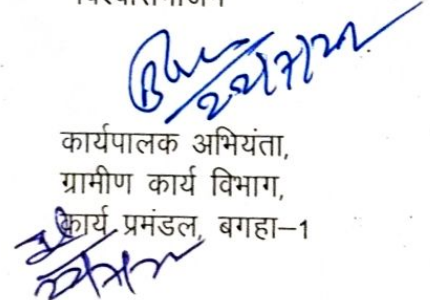 विश्वासभाजन
कार्यपालक अभियंता,
ग्रामीण कार्य विभाग,
कार्य प्रमंडल, बगहा-1